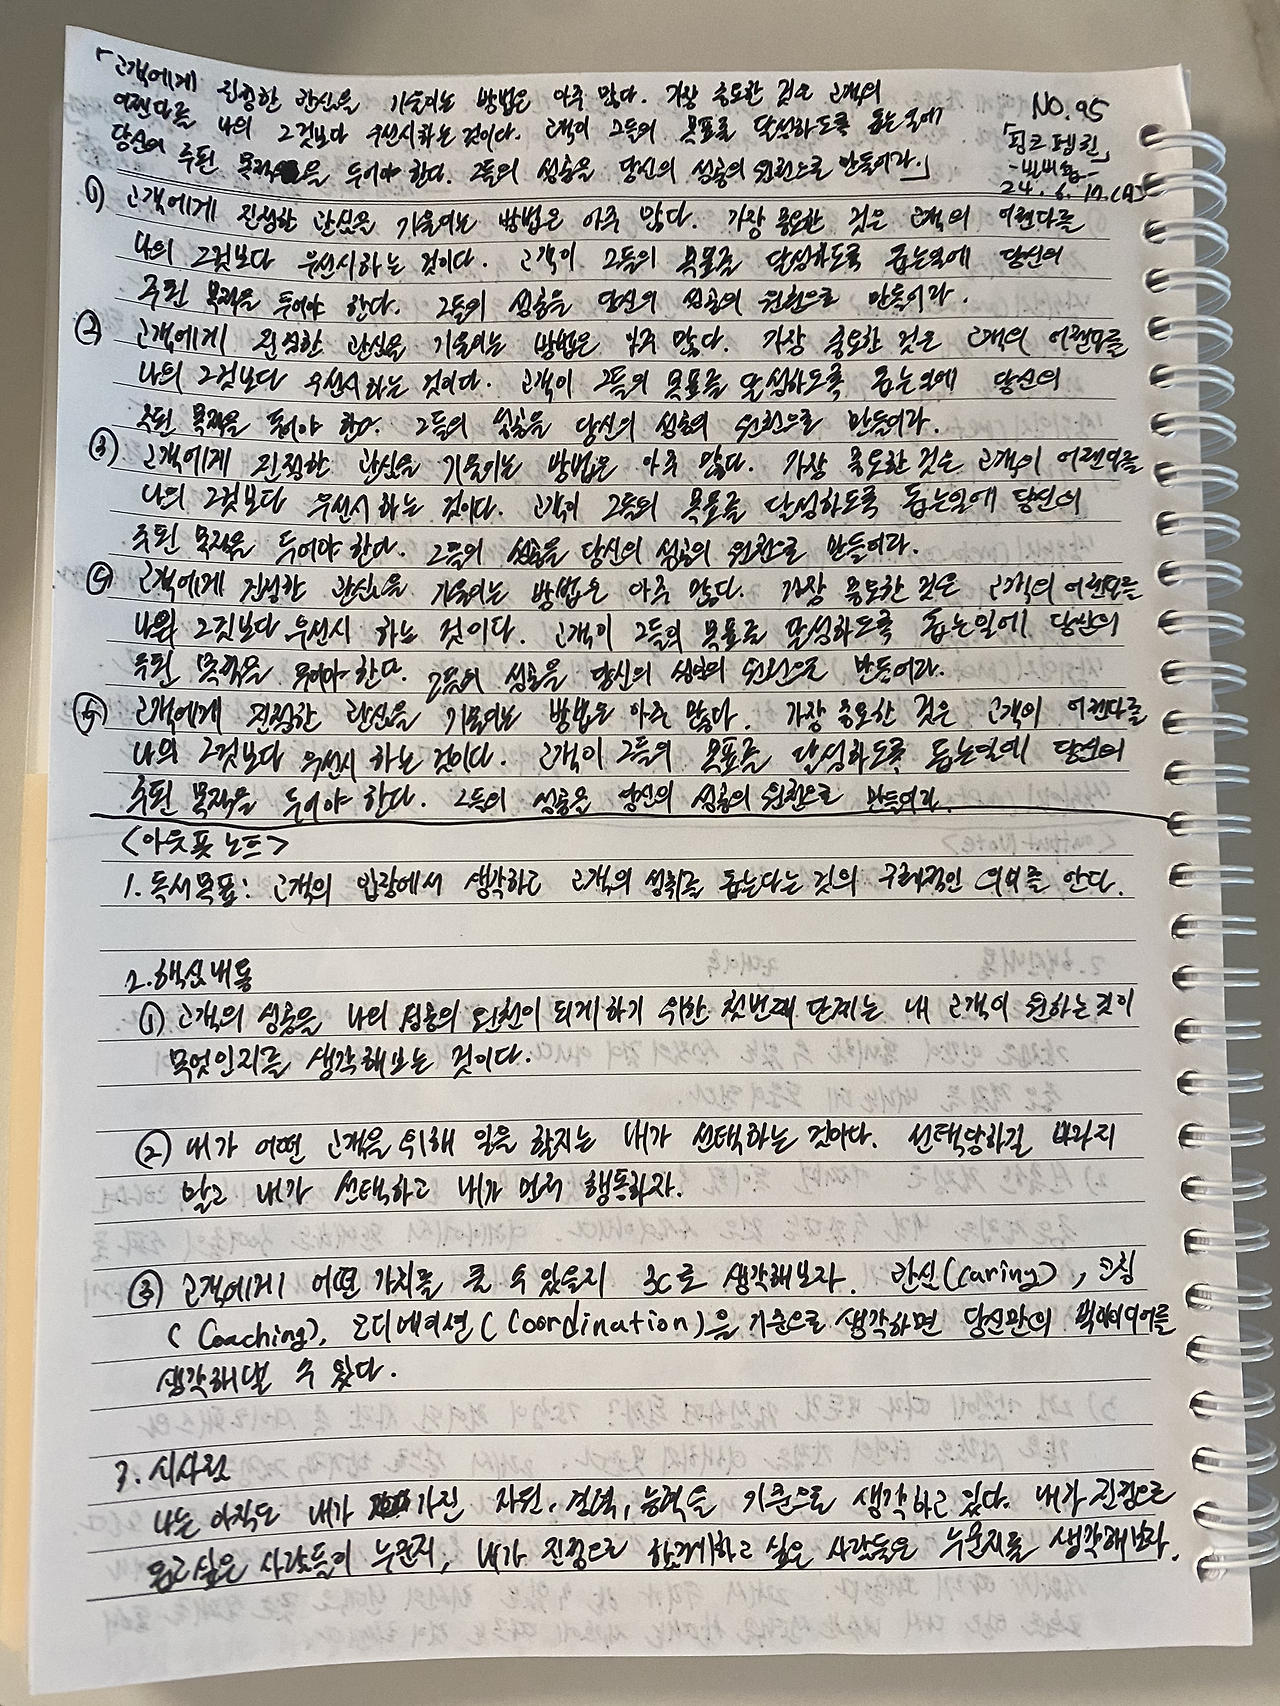 「고객에게 진정한 관심을 기울이는 방법은 아주 많다. 가장 중요한 것은 고객의
어젠다를 나의 그것보다 우선시하는 것이다. 고객이 그들의 목표를 달성하도록 돕는 일에
당신의 주된 목적을 두어야 한다. 그들의 성공을 당신의 성공의 원천으로 만들어라.」
NO.95
「핑크펭귄」
24. 6. 17.(月)
① 고객에게 진정한 관심을 기울이는 방법은 아주 많다. 가장 중요한 것은 고객의 어젠다를
나의 그것보다 우선시하는 것이다. 고객이 그들의 목표를 달성하도록 돕는일에 당신의
주된 목적을 두어야 한다. 그들의 성공을 당신의 성공의 원천으로 만들어라.
② 고객에게 진정한 관심을 기울이는 방법은 아주 많다. 가장 중요한 것은 고객의 어젠다를
나의 그것보다 우선시하는 것이다. 고객이 그들의 목표를 달성하도록 돕는일에 당신의
주된 목적을 두어야 한다. 그들의 성공을 당신의 성공의 원천으로 만들어라.
③ 고객에게 진정한 관심을 기울이는 방법은 아주 많다. 가장 중요한 것은 고객의 어젠다를
나의 그것보다 우선시 하는 것이다. 고객이 그들의 목표를 달성하도록 돕는일에 당신의
주된 목적을 두어야 한다. 그들의 성공을 당신의 성공의 원천으로 만들어라.
고객에게 진정한 관심을 기울이는 방법은 아주 많다. 가장 중요한 것은 고객의 어젠다를
나의 그것보다 우선시 하는 것이다. 고객이 그들의 목표를 달성하도록 돕는일에 당신의
주된 목적을 두어야 한다. 그들의 성공을 당신의 성공의 원천으로 만들어라.
⑤ 고객에게 진정한 관심을 기울이는 방법은 아주 많다. 가장 중요한 것은 고객의 어젠다를
나의 그것보다 우선시 하는 것이다. 고객이 그들의 목표를 달성하도록 돕는일에 당신의
주된 목적을 두어야 한다. 그들의 성공을 당신의 성공의 원천으로 만들어라.
<아웃풋 노트>
1. 독서목표: 고객의 입장에서 생각하고 고객의 성취를 돕는다는 것의 구체적인 의미를 안다.
2. 핵심내용
① 고객의 성공을 나의 성공의 원천이 되게하기 위한 첫번째 단계는 내 고객이 원하는것이
무엇인지를 생각해보는 것이다.
② 내가 어떤 고객을 위해 일을 할지는 내가 선택하는 것이다. 선택당하길 바라지
말고 내가 선택하고 내가 먼저 행동하자.
③ 고객에게 어떤 가치를 줄 수 있을지 3C로 생각해보자. 관심(Caring), 코칭
(Coaching), 코디네이션(Coordination)을 기준으로 생각하면 당신만의 빅아이디어를
생각해낼 수 있다.
3. 시사점
나는 아직도 내가 가진 자원, 경력, 능력을 기준으로 생각하고 있다. 내가 진정으로
돕고싶은 사람들이 누군지, 내가 진정으로 함께하고 싶은 사람들은 누군지를 생각해보자.